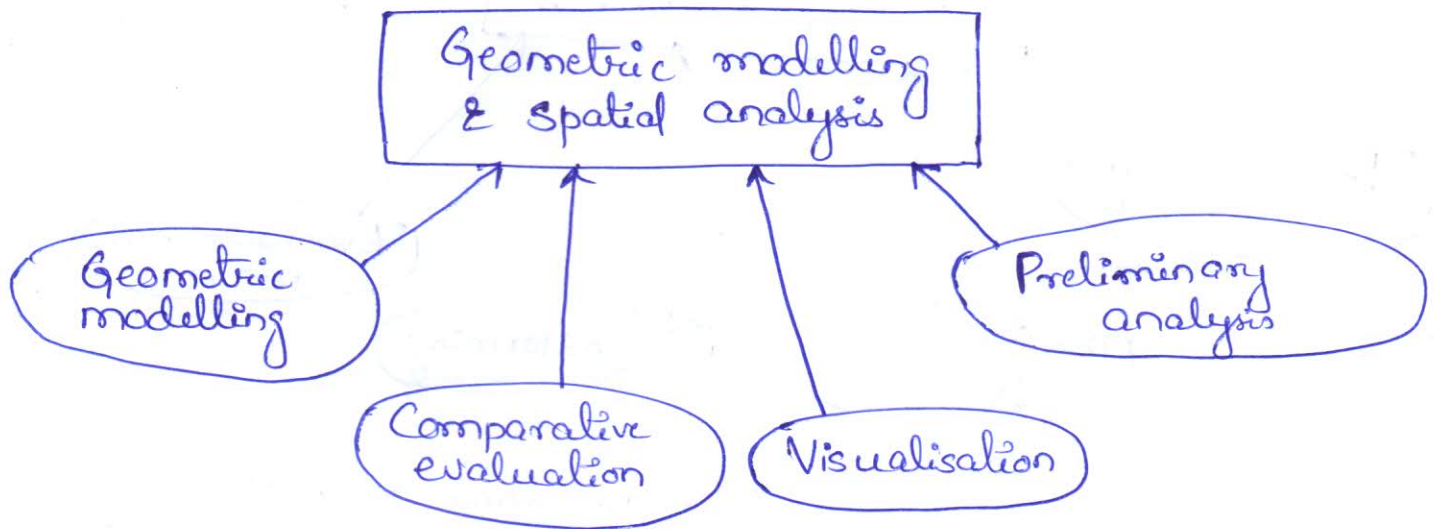 Geometric modelling
& spatial analysis
Geometric
modelling
Comparative
evaluation
Visualisation
Preliminary
analysis